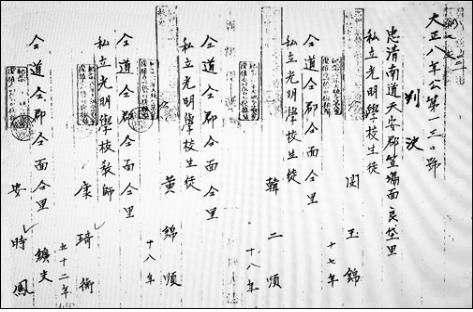 大正八年公第一三〇號
判決
忠清南道天安郡笠場面良垈里
私立光明學校生徒
閔玉錦
十七年
仝道仝郡仝面仝里
私立光明學校生徒
韓二順
十八年
仝道仝郡仝面仝里
私立光明學校生徒
黃錦順
十八年
仝道仝郡仝面仝里
私立光明學校敎師
康琦衡
五十二年
仝道仝郡仝面仝里
鑛夫
安時鳳